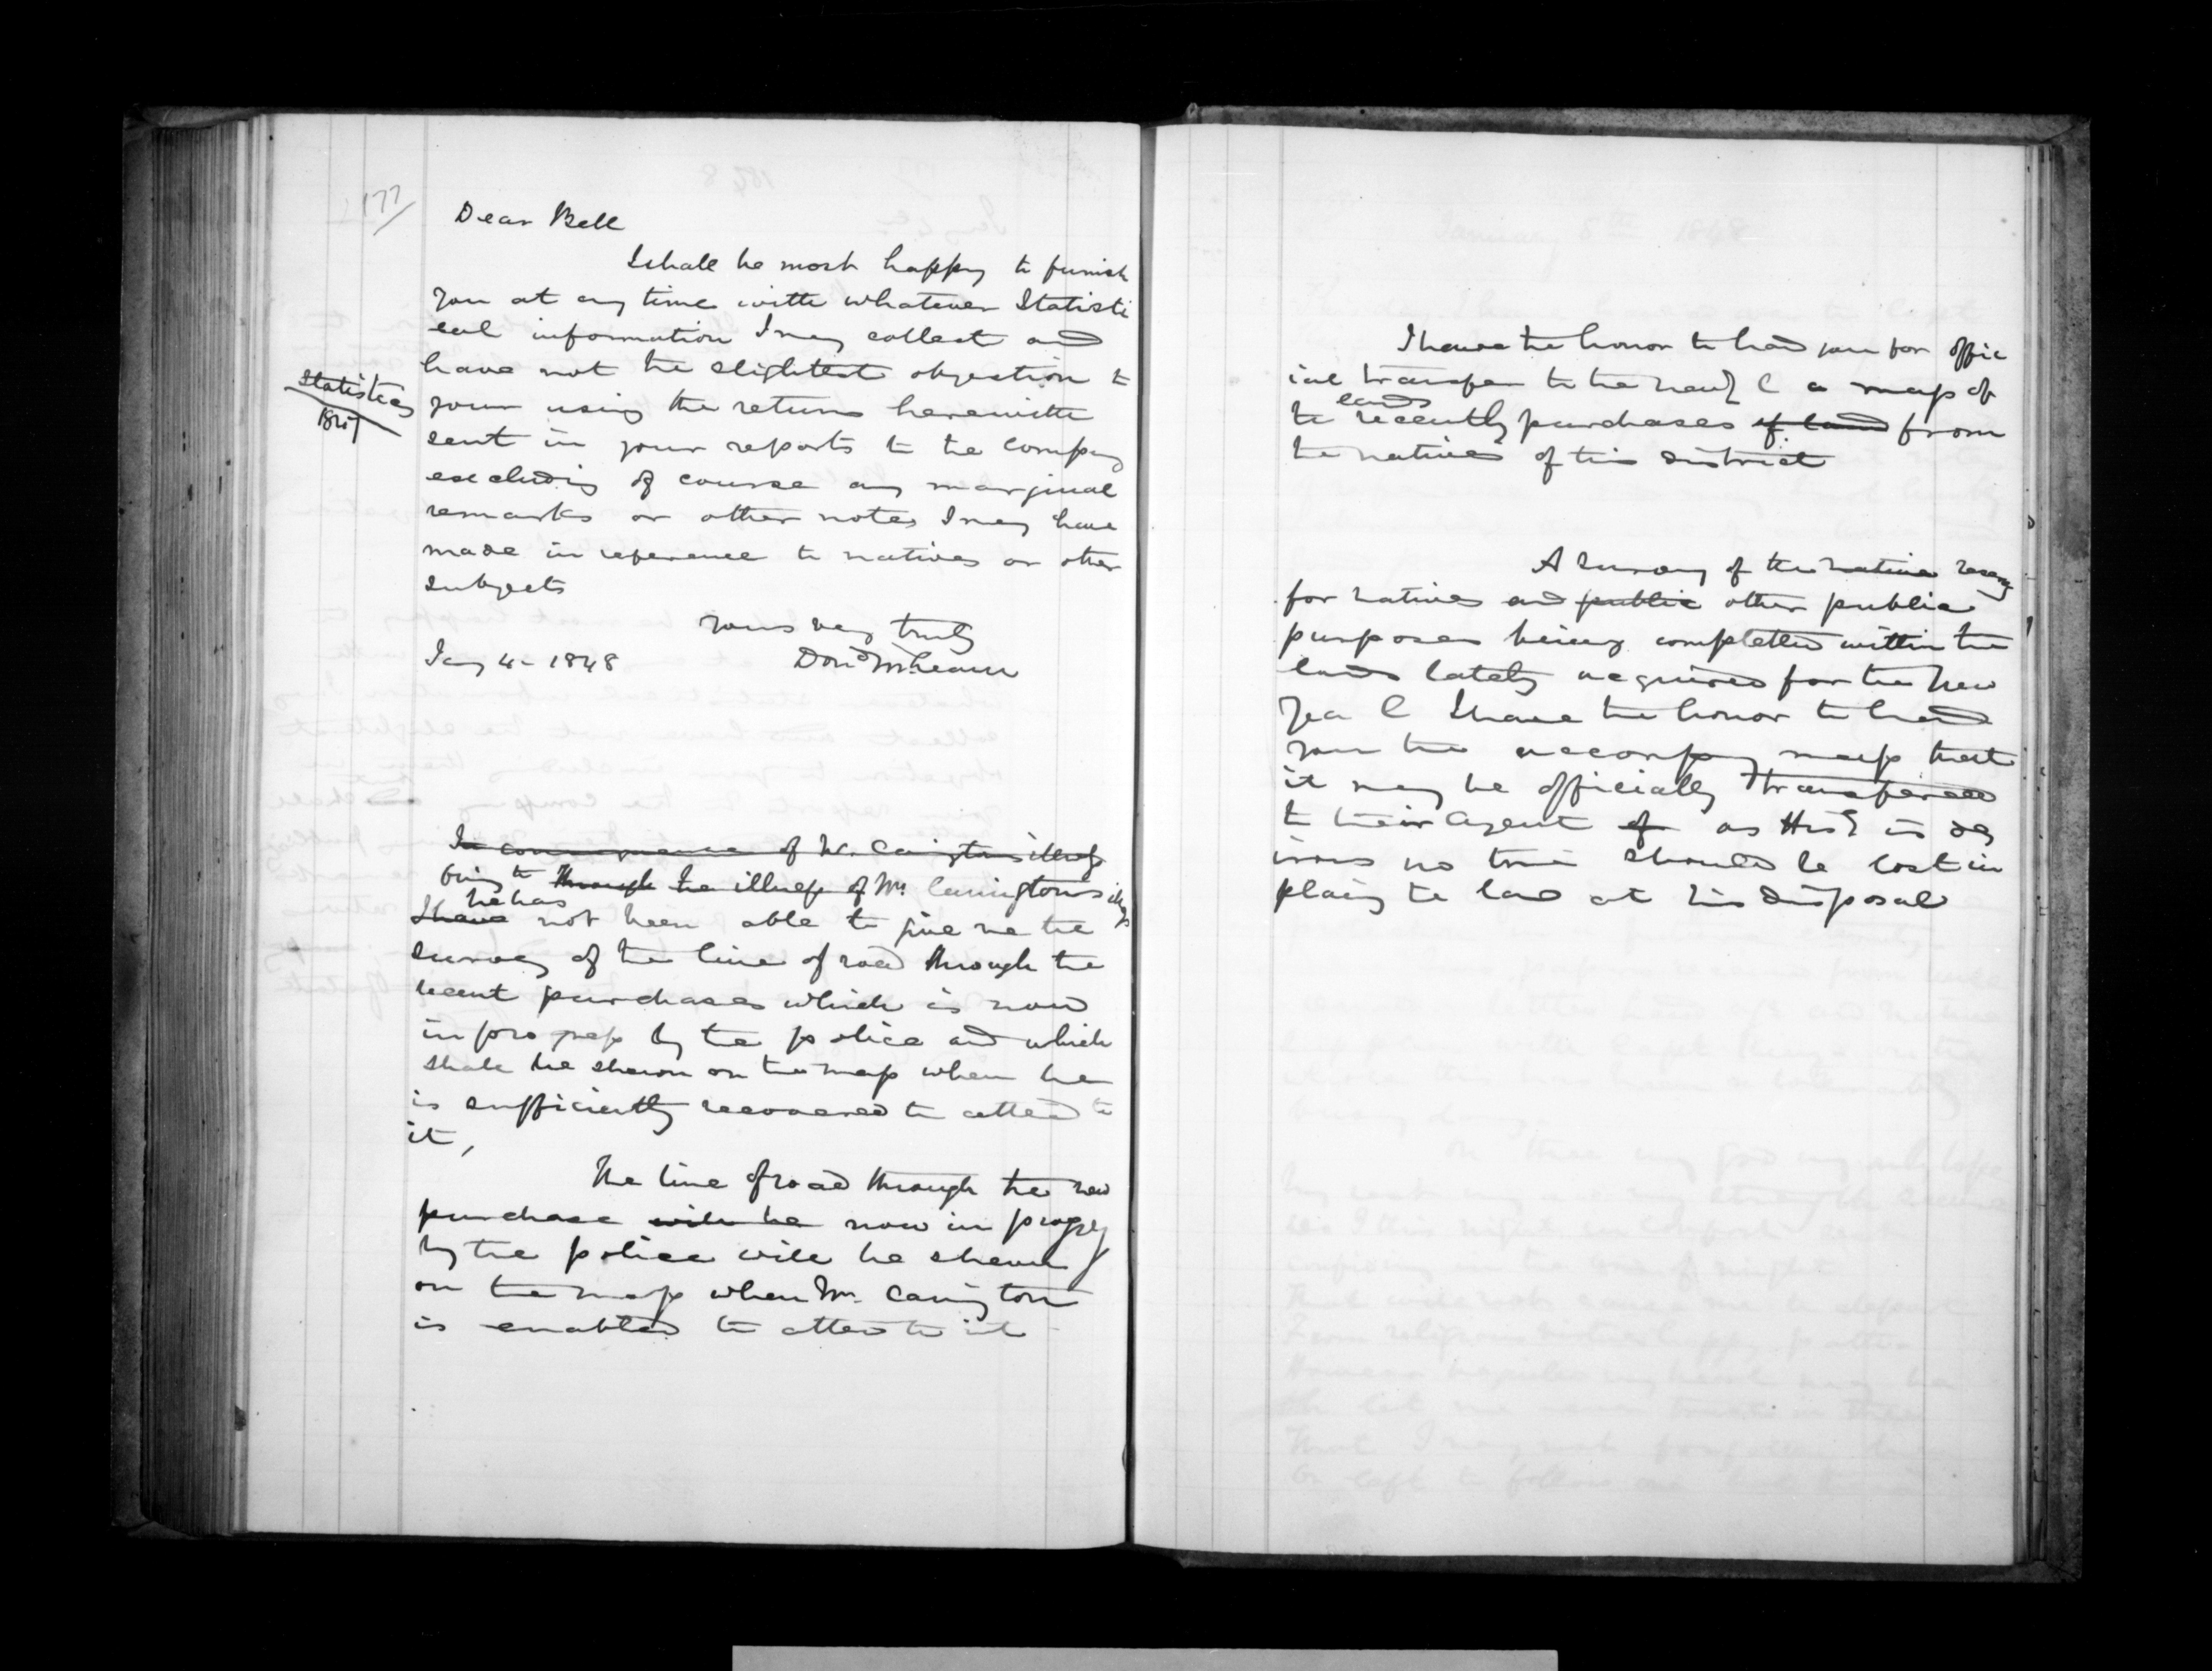 177
Dear Bell
I shall be most happy to furnish
you at any time with whatever Statisti
cal information I may collect and
have not the slightest objection to
Statistics
your using the returns herewith
sent in your reports to the Company
excluding of course any marginal
remarks or other notes I may have
made in reference to natives or other
subjects
yours very truly
Jany 4 - 1848 Dond McLean
In consequence of Mr. Caringtons illness
Owing to through the illness of Mr. Carringtons illness
he has
I have not been able to give me the
survey of the line of road through the
recent purchases which is now
in progress by the police and which
shall be shewn on the map when he
is sufficiently recovered to attend to
it,
The line of road through the new
purchase will be now in progress
by the police will be shewn
on the map when Mr. Carington
is enabled to attend to it
I have the honor to hand you for offic
ial transfer to the New Z C a map of
lands
the recently purchases of land from
the natives of this district
A survey of the native reserves
for natives and public other public
purposes being completed within the
lands lately acquired for the New
Zea C I have the honor to hand
you the accompy map that
it may be officially transfered
to their Agent of as His E is des
irous no time should be lost in
placing the land at his disposal